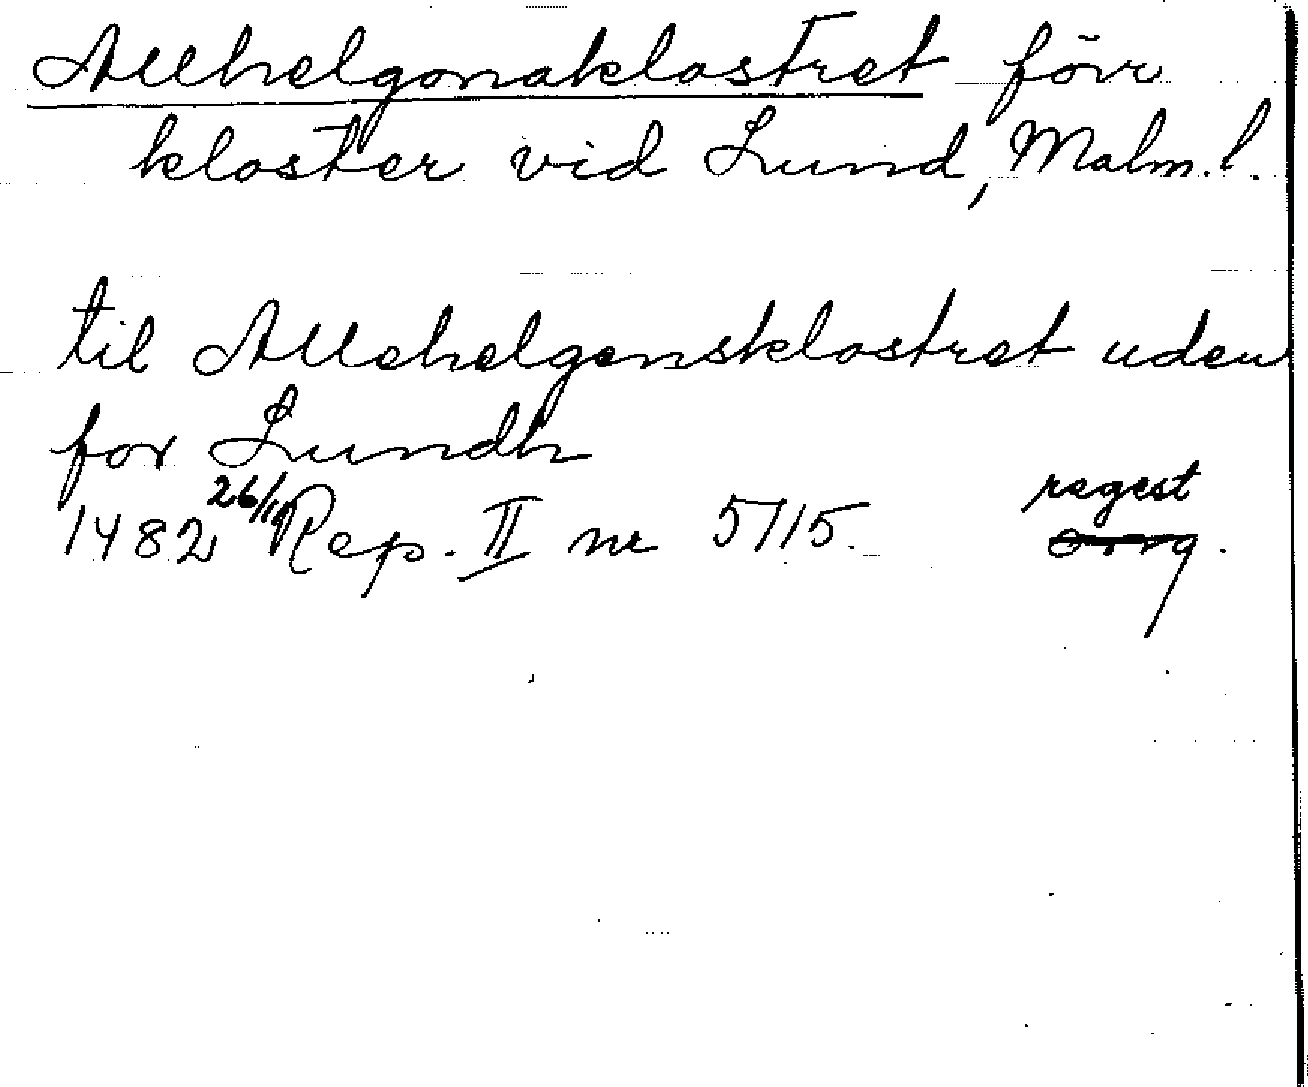 Allhelgonaklostret förr
kloster vid Lund, Malm. l.
til Allehelgensklostret uden
for Lundh
1482 26/10 Rep. II nr 5715. regest
orig.